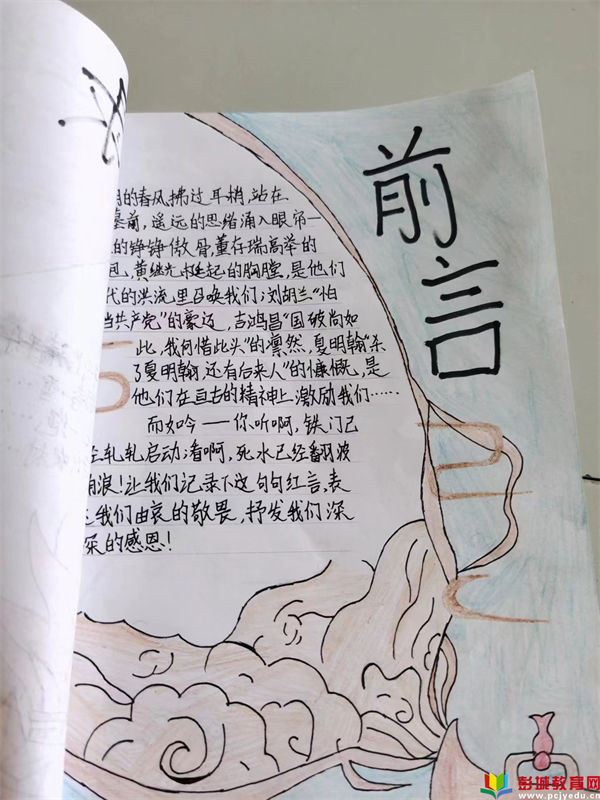 前言
的春风拂过耳梢,站在
墓前,遥远的思绪涌入眼帘—
的铮铮傲骨,董存瑞高举的
包,黄继光堵起的胸膛,是他们
代的洪流里召唤我们;刘胡兰“怕
当共产党”的豪迈,吉鸿昌“国破尚如
此,我何惜此头”的凛然,夏明翰“杀
了夏明翰 还有后来人”的慷慨,是
他们在亘古的精神上激励我们……
而如今——你听啊,铁门已
轧轧启动;看啊,死水已经翻波
浪!让我们记录下这句句红言,表
达我们由衷的敬畏,抒发我们深
深的感恩!
彭城教育网
www.pcjyedu.cn